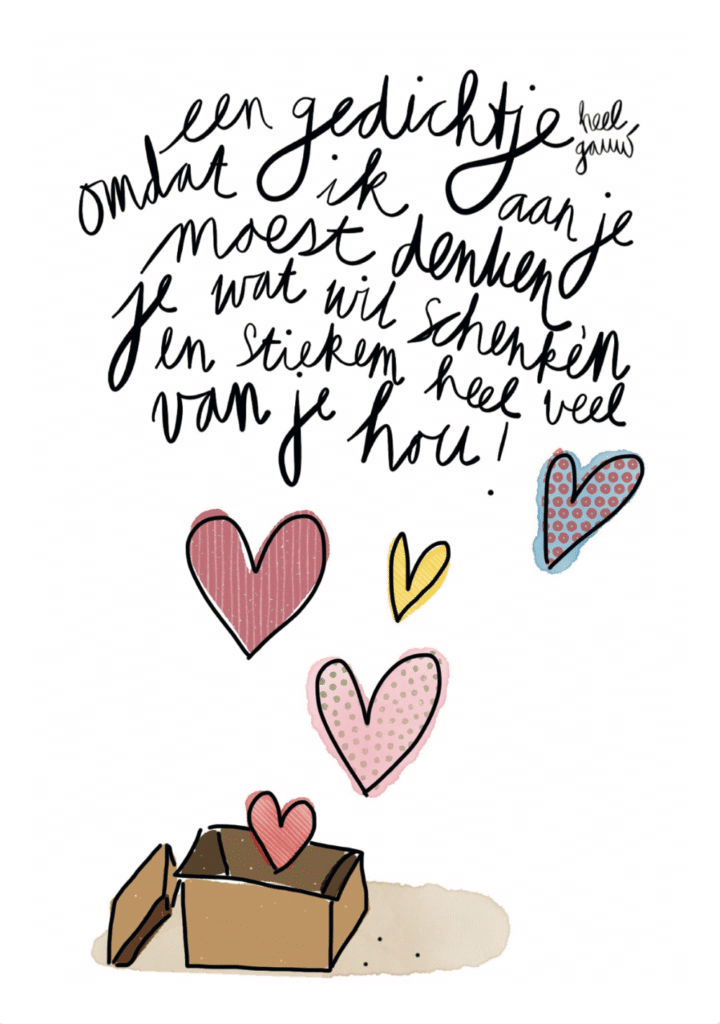 een gedichtje heel
gauw
omdat ik aan je
moest denken
je wat wil schenkèn
en stiekem heel veel
van je hou!